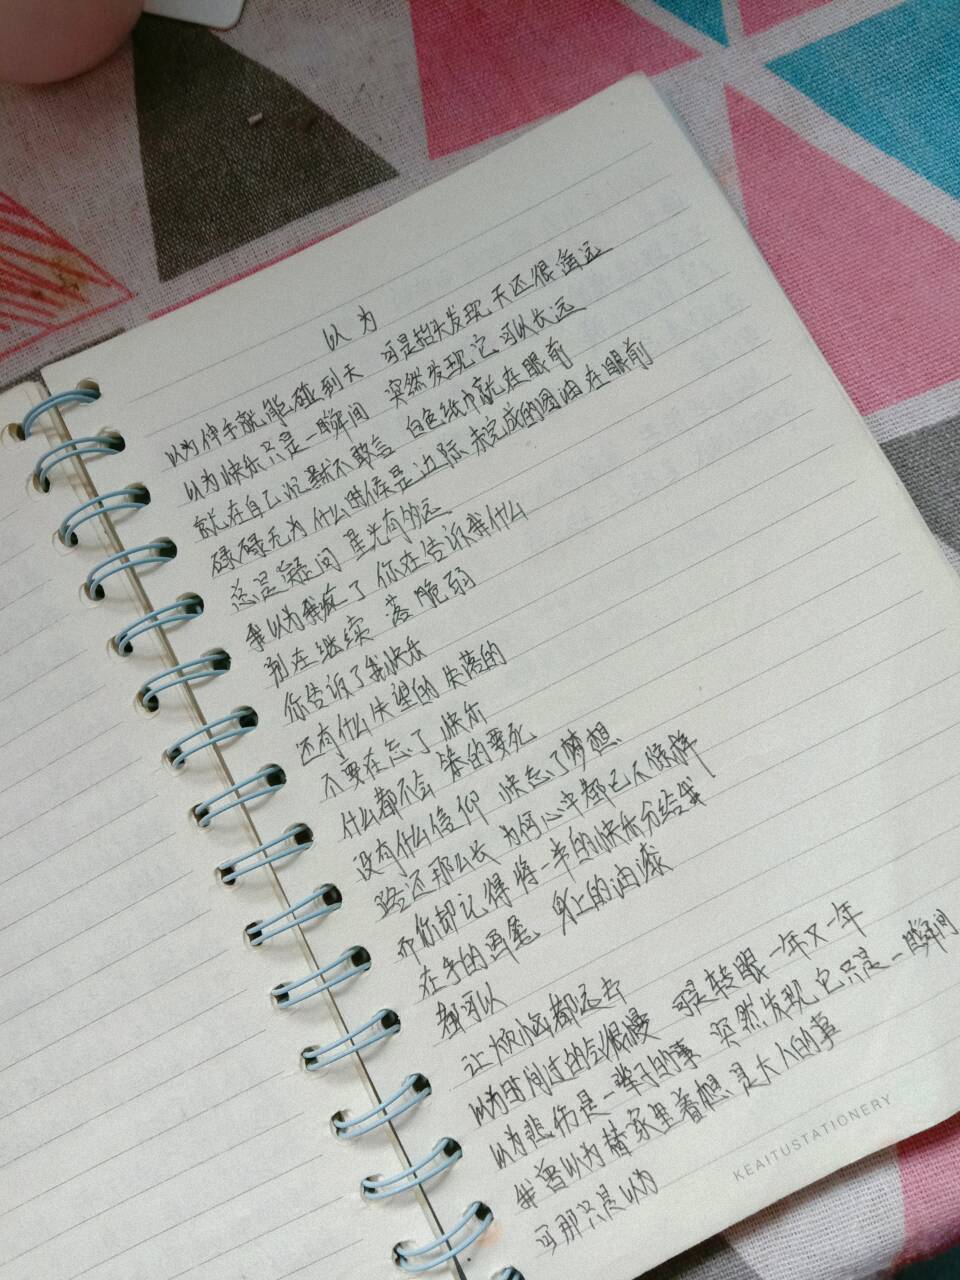 以为
以为伸手就能碰到天 可是抬头发现天还很遥远
以为快乐只是一瞬间 突然发现它可以长远
就在自己沉默不敢言 白色纸巾就在眼前
碌碌无为 什么时候是边际 未完成的圆油在眼前
总是凝问 星光有够远
我以为我疯了 你在告诉我什么
别在继续 落脆弱
你告诉了我快乐
还有什么失望的 失落的
不要在忘了 快乐
什么都不会 笨的要死
没有什么信仰 快忘了梦想
路还那么长 为何心中都已不像样
而你却记得将一半的快乐分给我
在手的画笔 身上的油漆
都可以
让烦恼都远去
以为时间过的会很慢 可是转眼一年又一年
以为悲伤是一辈子的事 突然发现它只是一瞬间
我曾以为替家里着想,是大人的事
可那只是以为
KEAITUSTATIONERY